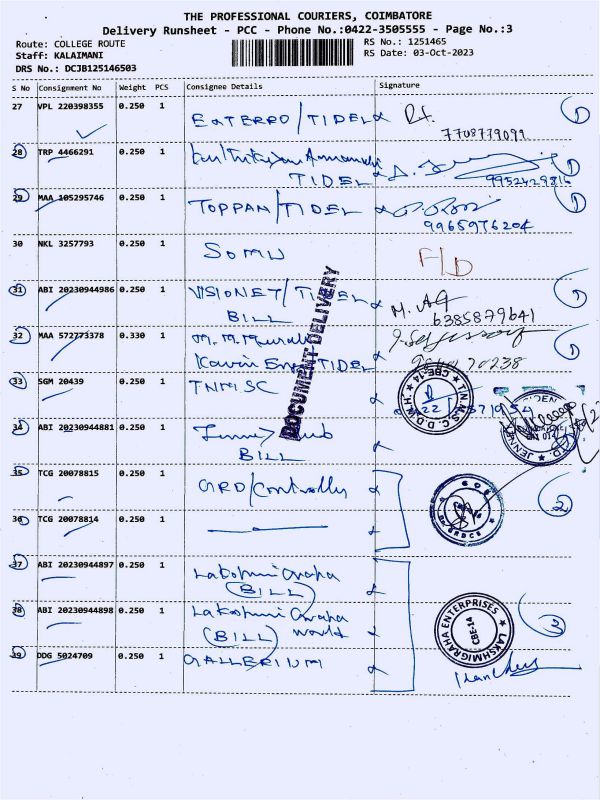 THE PROFESSIONAL COURIERS, COIMBATORE
Delivery Runsheet - PCC - Phone No.:0422-3505555 - Page No.:3
Route: COLLEGE ROUTE
Staff: KALAIMANI
DRS No.: DCJB125146503
RS No.: 1251465
RS Date: 03-Oct-2023
S No Consignment No Weight PCS Consignee Details Signature
27 VPL 220398355 0.250 1 /TIDEL
7708779099
28 TRP 4466291 0.250 1
TIDEL
9952429816
29 MAA 105295746 0.250 1 TOPPAN/TIDEL
9965976204
30 NKL 3257793 0.250 1 SOMU F/D
31 ABI 20230944986 0.250 1 VISIONET/TIDEL
BILL
6385879641
DOCUMENT DELIVERY
32 MAA 572773378 0.330 1
Kavin TIDEL
33 SGM 20439 0.250 1 TNMSC
CBE-14
34 ABI 20230944881 0.250 1
BILL
35 TCG 20078815 0.250 1 GRD/Controller
2
36 TCG 20078814 0.250 1
37 ABI 20230944897 0.250 1 Lakshmi Graha
(BILL)
38 ABI 20230944898 0.250 1 Lakshmi Graha
(BILL) world
LAKSHMIGRAHA ENTERPRISES
CBE-14
39 DDG 5024709 0.250 1 GALLERIUM